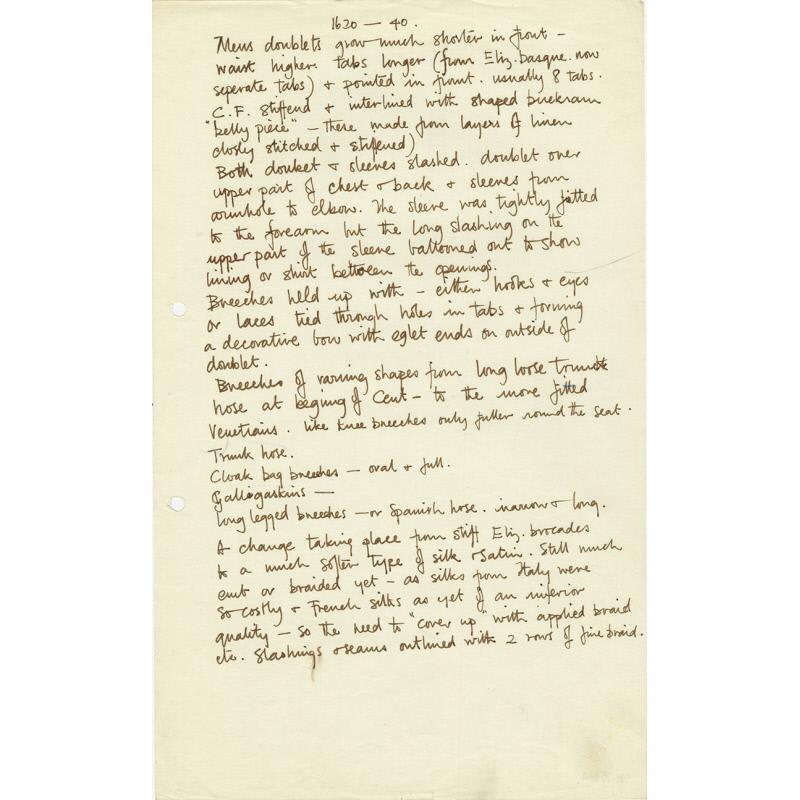 1620 — 40.
Mens doublets grow much shorter in front –
waist higher. tabs longer (from Eliz. basque. now
seperate tabs) + pointed in front. usually 8 tabs.
C.F. stiffend + interlined with shaped buckram
"belly piece" – there made from layers of linen
closly stitched + stiffened)
Both doublet + sleeves slashed. doublet over
upper part of chest + back + sleeves from
armhole to elbow. The sleeve was tightly fitted
to the forearm but the long slashing on the
upper part of the sleeve ballooned out to show
lining or shirt between the openings.
Breeches held up with – either hooks + eyes
or laces tied through holes in tabs + forming
a decorative bow with eglet ends on outside of
doublet.
Breeches of varning shapes from long loose trunk
hose at begining of Cent – to the more fitted
Venetians. like knee breeches only fuller round the seat.
Trunk hose.
Cloak bag breeches – oval + full.
Galligaskins —
Long legged breeches – or Spanish hose. narrow + long.
A change taking place from stiff Eliz. brocades
to a much softer type of silk + Satin. Still much
emb or braided yet – as silks from Italy were
so costly + French silks as yet of an inferior
quality – so the need to "cover up" with applied braid
etc. Slashings + seams outlined with 2 rows of fine braid.